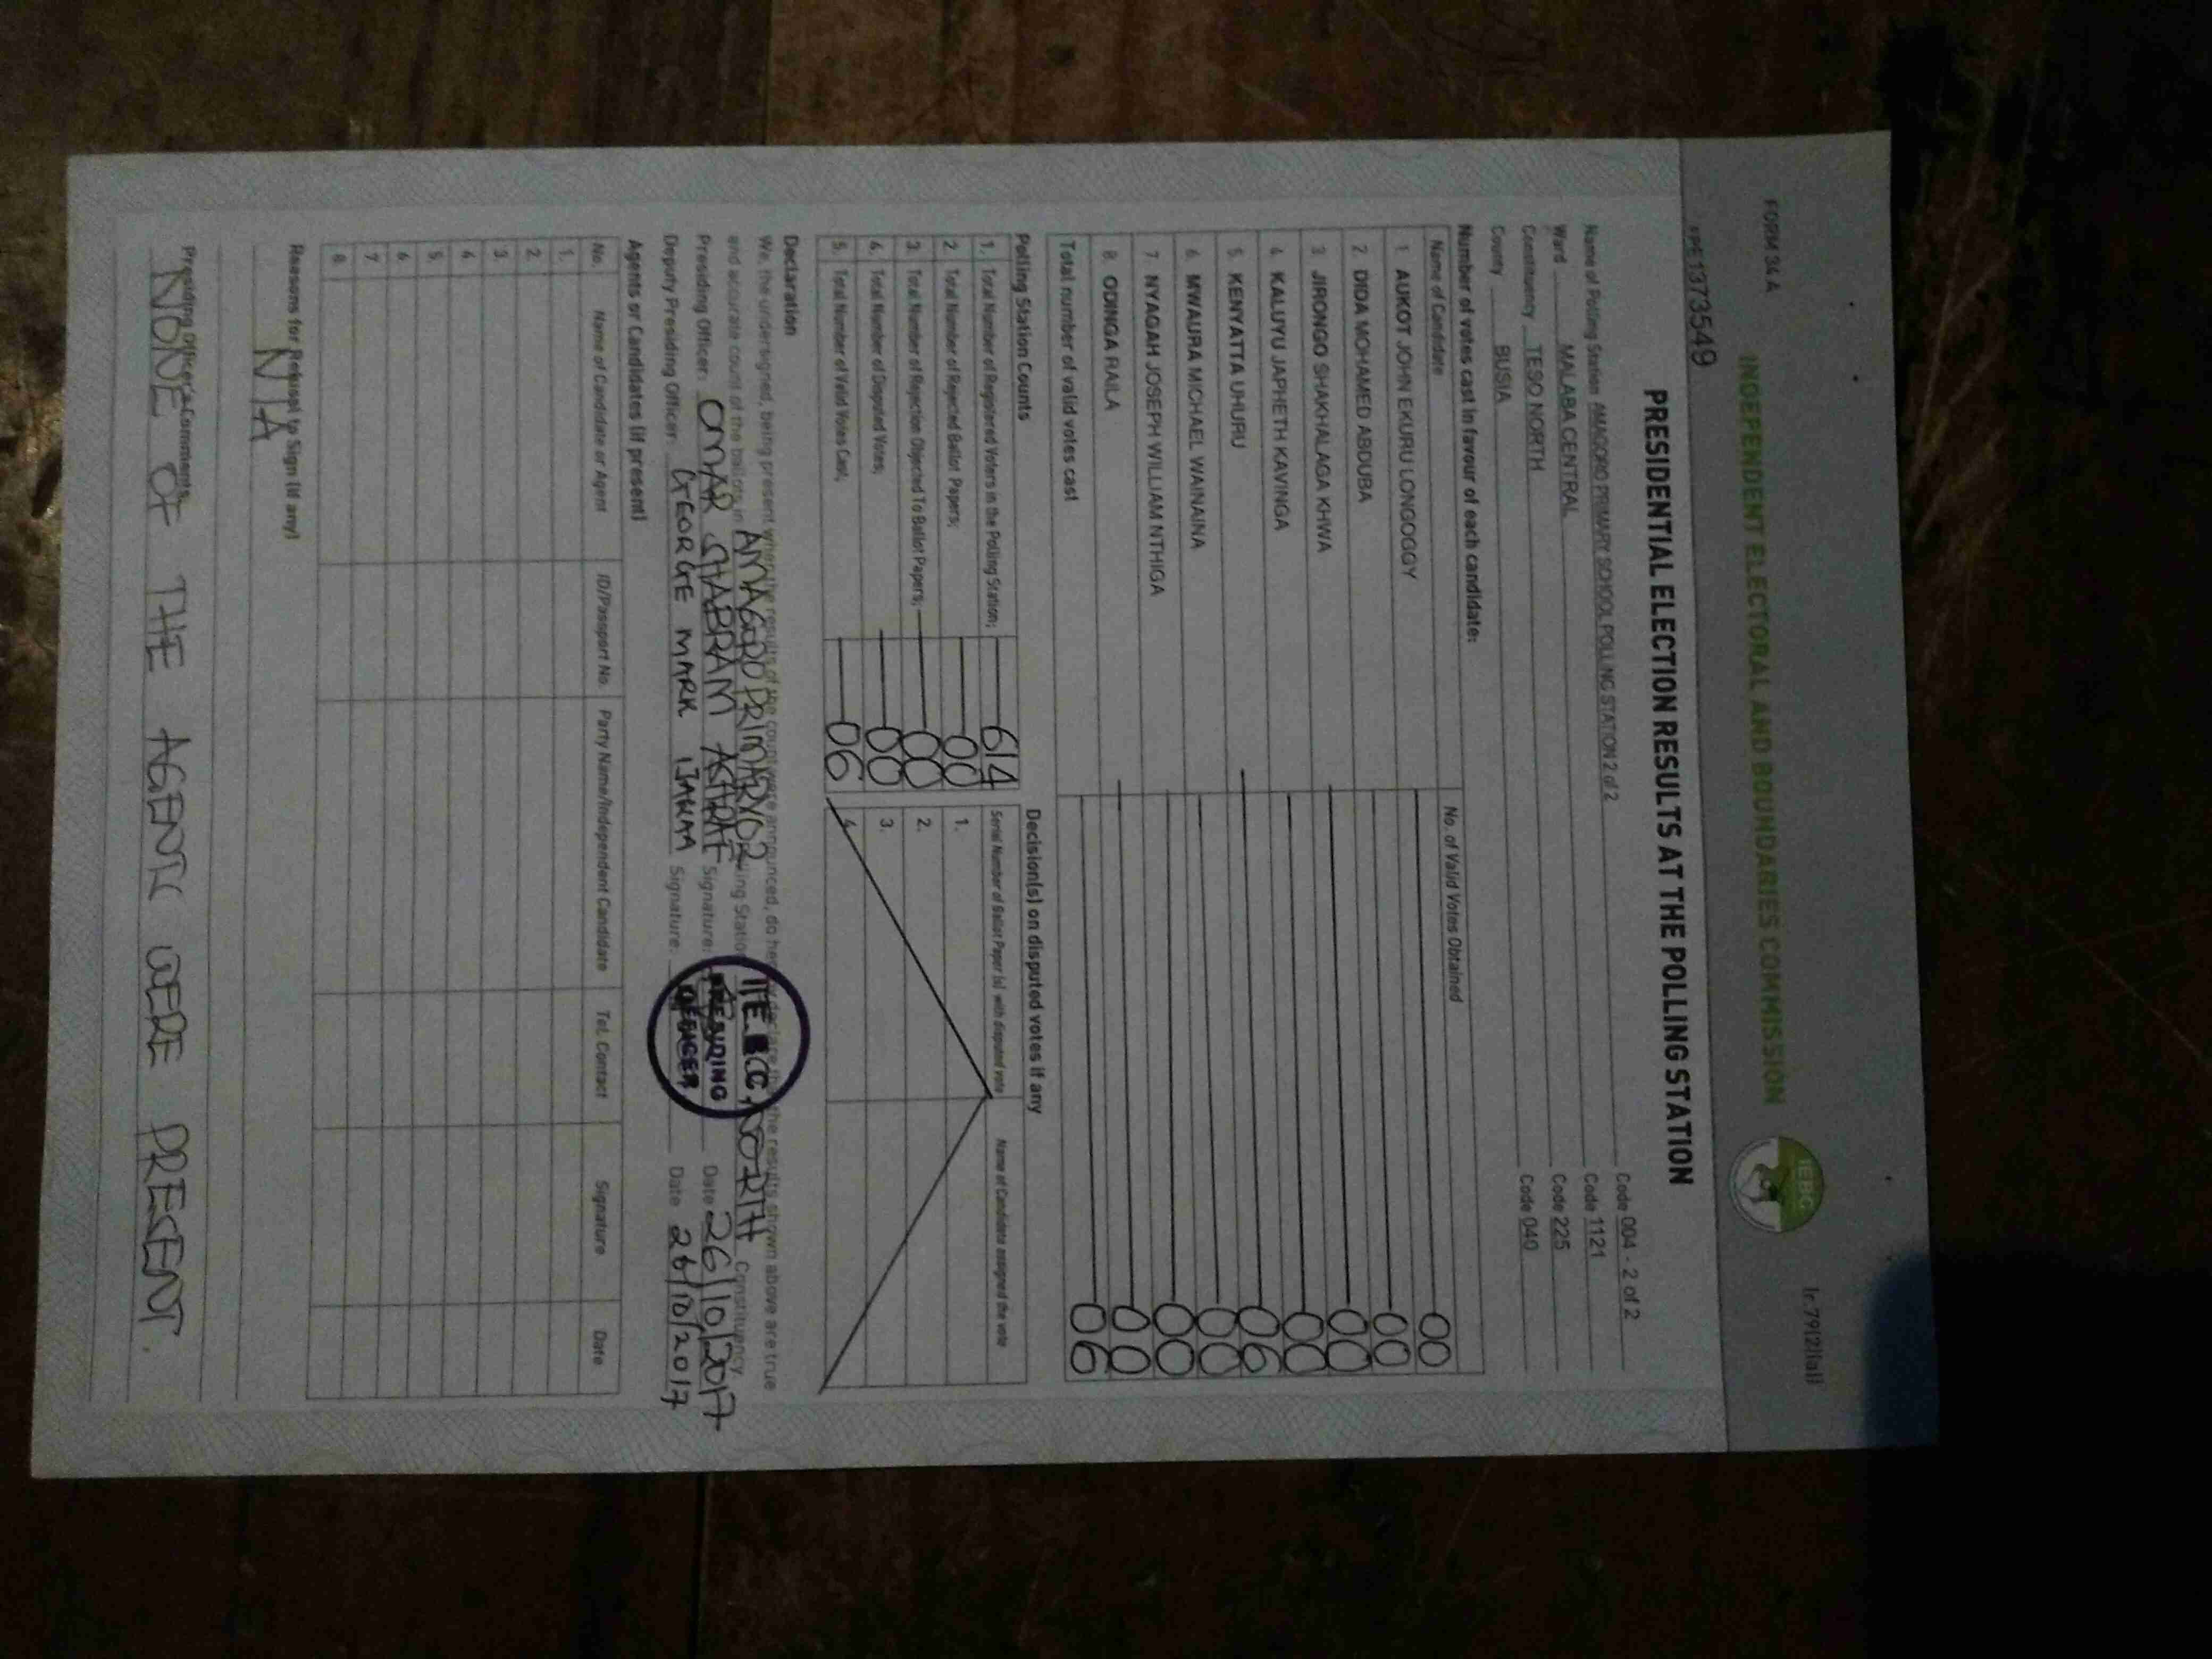 FORM 34 A
r. 79(2)(a)
INDEPENDENT ELECTORAL AND BOUNDARIES COMMISSION
IEBC
1373549
PRESIDENTIAL ELECTION RESULTS AT THE POLLING STATION
Name of Polling Station AMAGORO PRIMARY SCHOOL POLLING STATION 2 of 2 Code 004 - 2 of 2
Ward MALABA CENTRAL Code 1121
Constituency TESO NORTH Code 225
County BUSIA Code 040
Number of votes cast in favour of each candidate:
Name of Candidate No. of Valid Votes Obtained
1 AUKOT JOHN EKURU LONGOGGY 00
2. DIDA MOHAMED ABDUBA 00
3 JIRONGO SHAKHALAGA KHWA 00
4 KALUYU JAPHETH KAVINGA 00
5. KENYATTA UHURU 06
6 MWAURA MICHAEL WAINAINA 00
7 NYAGAH JOSEPH WILLIAM NTHIGA 00
8. ODINGA RAILA 00
Total number of valid votes cast 06
Polling Station Counts
1. Total Number of Registered Voters in the Polling Station; 614
2. Total Number of Rejected Ballot Papers; 00
3. Total Number of Rejection Objected To Ballot Papers; 00
4. Total Number of Disputed Votes; 00
5. Total Number of Valid Votes Cast; 06
Decision(s) on disputed votes if any
Serial Number of Ballot Paper (s) with disputed vote Name of Candidate assigned the vote
1.
2.
3.
4.
Declaration
We, the undersigned, being present when the results of the count were announced, do hereby declare that the results shown above are true
and accurate count of the ballots in AMAGORO PRIMARY 02 Polling Station NORTH Constituency
Presiding Officer: OMAR Signature: Date 26/10/2017
Deputy Presiding Officer: GEORGE MARK Signature: Date 26/10/2017
PRESIDING
OFFICER
Agents or Candidates (if present)
No. Name of Candidate or Agent ID/Passport No. Party Name/Independent Candidate Tel. Contact Signature Date
1.
2.
3.
4
5.
6
7.
8.
Reasons for Refusal to Sign (if any)
N/A
Presiding Officer's Comments
NONE OF THE AGENTS WERE PRESENT.